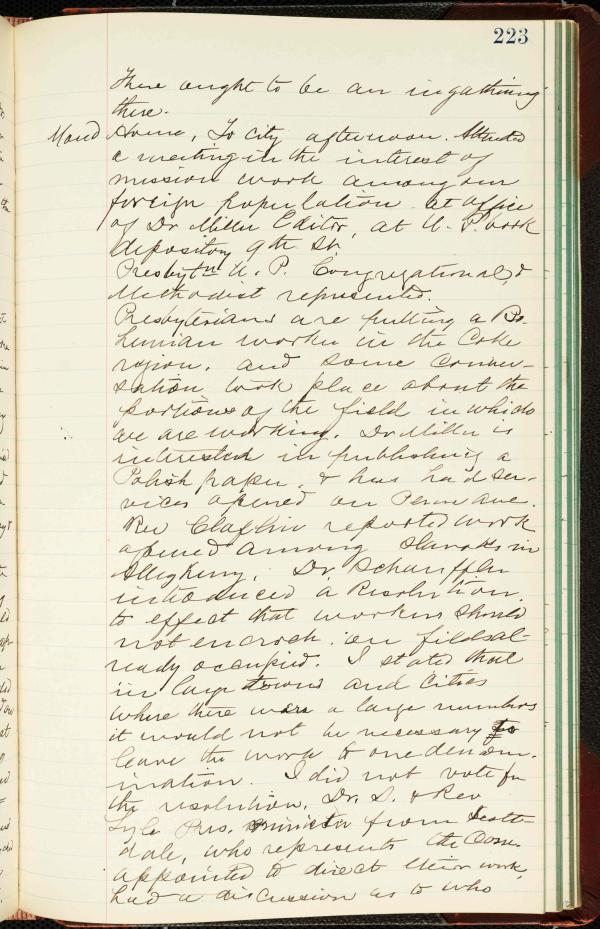 223
There ought to be an ingathering
there.
Mond Avene, To city afternoon. Attended
a meeting in the interest of
mission work among our
foreign population at office
of Dr Miller Editor, at U. P. book
depository 9th St.
Presbytn U. P. Congregational, &
Methodist represented.
Presbyterians are putting a Bo-
hemian worker in the Coke
region, and some conver-
sation took place about the
portions of the field in which
we are working. Dr Miller is
interested in publishing a
Polish paper, & has had ser-
vices opened on Penn Ave.
Rev Claflin reported work
opened among Slavaks in
Allegheny. Dr. Schauffler
introduced a Resolution
to effect that workers should
not encroch on fields al-
ready occupied. I stated that
in large towns and Cities
where there were a large numbers
it would not be necessary to
leave the work to one denom-
ination. I did not vote for
the resolution. Dr. S. & Rev
Lyle Pres. minister from Scott-
dale, who represents the Com.
appointed to direct their work,
had a discussion as to who